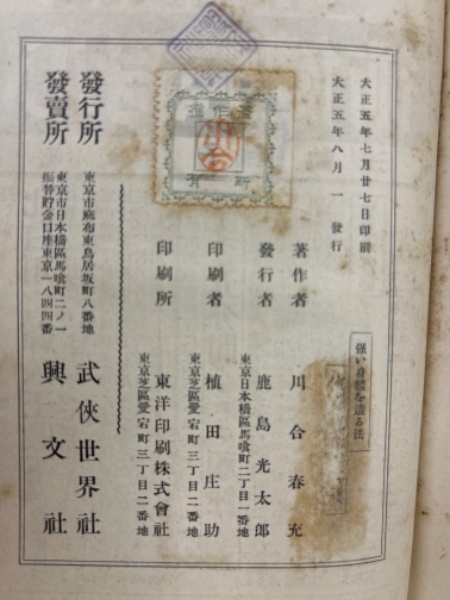 大正五年七月廿七日印刷
大正五年八月一　發行
強い身體を造る法
著作者　川合春充
發行者　鹿島光太郎
東京日本橋區馬喰町二丁目一番地
印刷者　植田庄助
東京芝區愛宕町三丁目二番地
印刷所　東洋印刷株式會社
東京芝區愛宕町三丁目二番地
著作
所有
川合
發行所　武俠世界社
東京市麻布東鳥居坂町八番地
發賣所　興文社
東京市日本橋區馬喰町二ノ一
振替貯金口座東京一八四四番